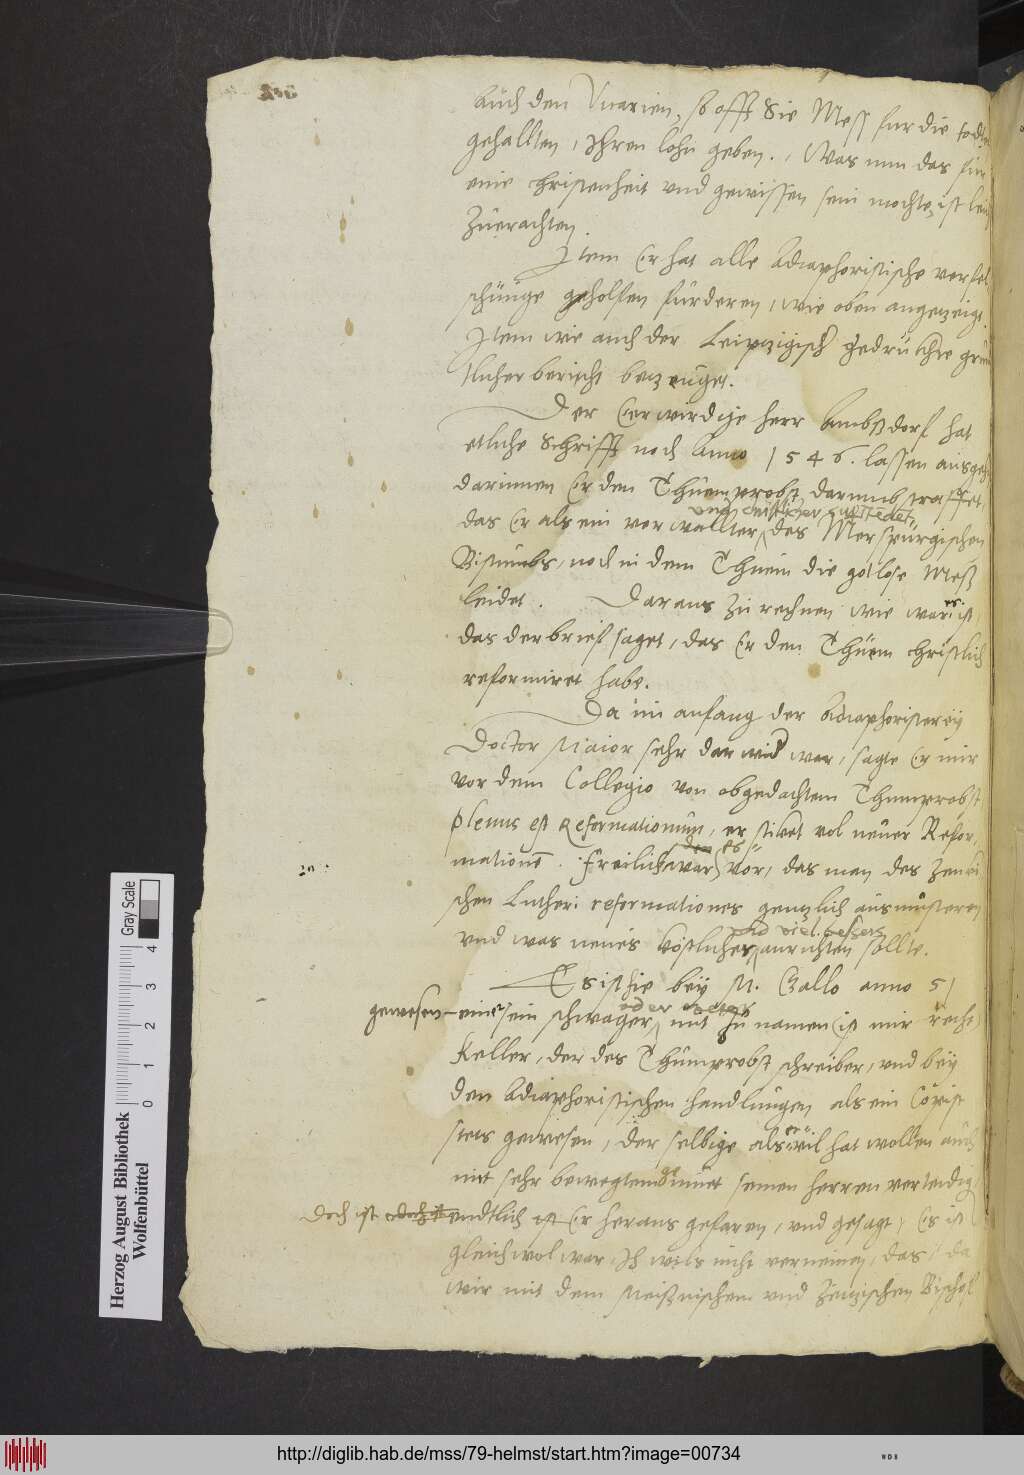 auch den Vicarien, so offt Sie Mess fur die todten
gehallten, Ihren lohn geben., Was nun das fur
eine christenheit vnd gewissen sein mochte, ist leich
Zuerachten.
Item Er hat alle Adiaphoristische verfel
schunge geholffen furderen, wie oben angetzeigt.
Item wie auch der Leiptzigisch gedruckte grun
tlicher bericht betzeuget.
Der Eerwirdige herr Ambßdorf hat
etliche Schrifft noch Anno 1546. lassen ausgeh
darinnen Er den Thumprobst darumb straffet,
und
das Er als ein verwallter des Merspurgischen
Bistumbs, noch in dem Thum die gotlose Meß
leidet. Daraus zu rechnen wie war es ist
das der brief saget, das Er den Thum christlich
reformiret habe.
Da im anfang der Adiaphoristerey
Doctor Maior sehr darwid war, sagte Er mir
vor dem Collegio von obgedachtem Thumprobst
plenus est Reformationum, er stiket vol neuer Refor,
mationen. Freilich war es vor, das man des
schen Lutheri reformationes gentzlich ausmusteren
vnd viel bessers
vnd was neues kostliches anrichten sollte.
Es ist hie bey M. Gallo anno 51
oder
gewesen einer sein schwager, mit Zu namen (ist mir recht)
Keller, der des Thumprobst schreiber, vnd bey
den Adiaphoristischen handlungen als ein Copist
stets gewesen, der selbige als er vil hat wollen auch
mit sehr bewegtem gemuet seinen herren verteidig
Doch ist endtlich ist Er heraus gefaren, vnd gesagt, Es ist
gleichwol war, Ich wils nicht verneinen, das, da
wir mit dem Meißnischem vnd Zeitzischen Bischof
Herzog August Bibliothek
Wolfenbüttel
Gray Scale
0 1 2 3 4
http://diglib.hab.de/mss/79-helmst/start.htm?image=00734